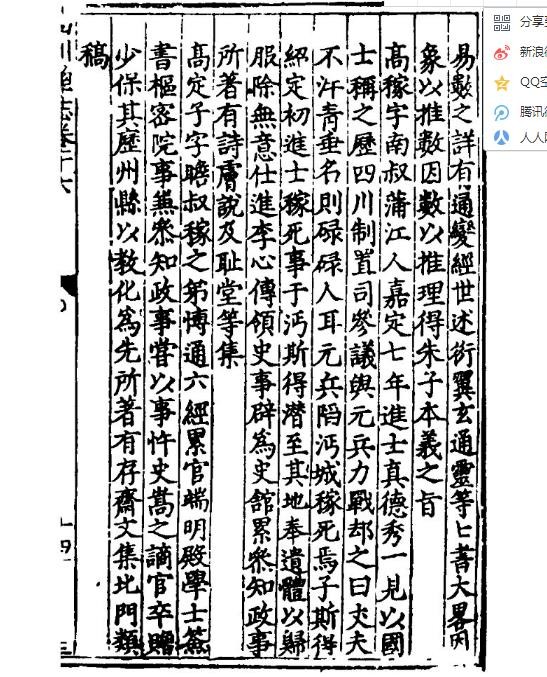 易數之詳有通變經世述衍翼玄通靈等七書大畧因
象以推數因數以推理得朱子本義之旨
高稼字南叔蒲江人嘉定七年進士真德秀一見以國
士稱之歷四川制置司參議與元兵力戰却之曰丈夫
不汗青垂名則碌碌人耳元兵陷沔城稼死焉子斯得
紹定初進士稼死事于沔斯得潛至其地奉遺體以歸
服除無意仕進李心傳領史事辟為史館累叅知政事
所著有詩膚說及耻堂等集
高定子字瞻叔稼之弟博通六經累官端明殿學士簽
書樞密院事兼叅知政事嘗以事忤史嵩之謫官卒贈
少保其歷州縣以教化為先所著有存齋文集北門類
稿
四川總志卷十六
分享到
新浪
QQ空
腾讯
人人